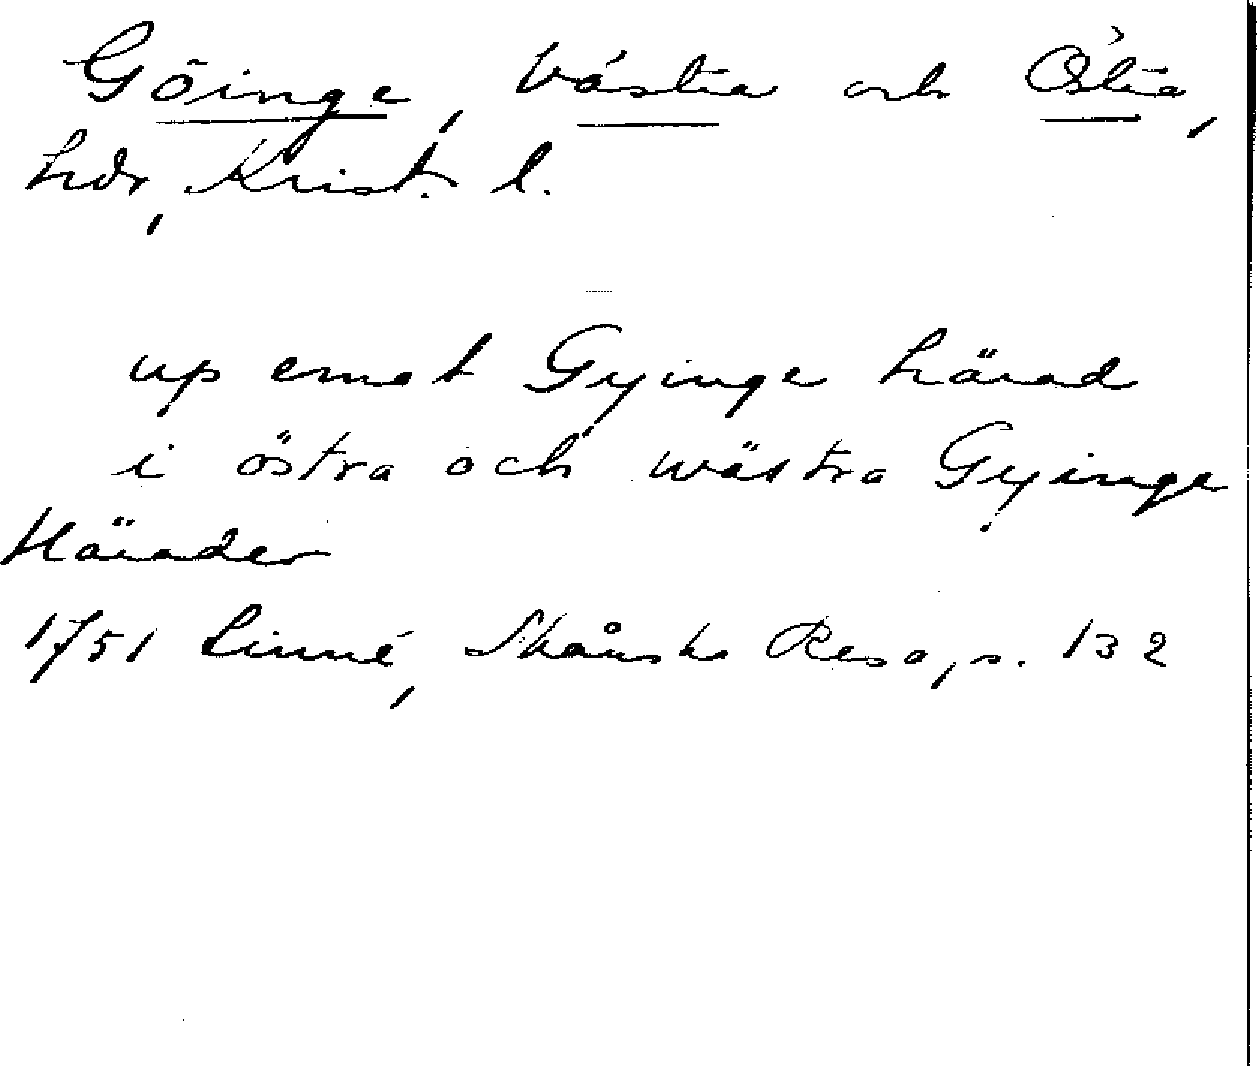 Göinge, Västra och Östra,
hdr, Krist. l.
up emot Gyinge härad
i östra och wästra Gyinge
Härader
1751 Linné, Skånska Resa, s. 132